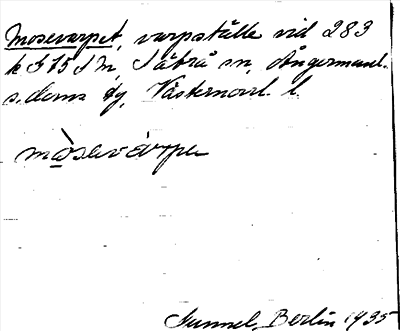 Mosevarpet, varpställe vid 283
k S 15 S M, Säbrå sn, Ångermanl.
s. doms dg, Västernorrl. l.
mòsavárpe
Sunnel, Berlin 1935